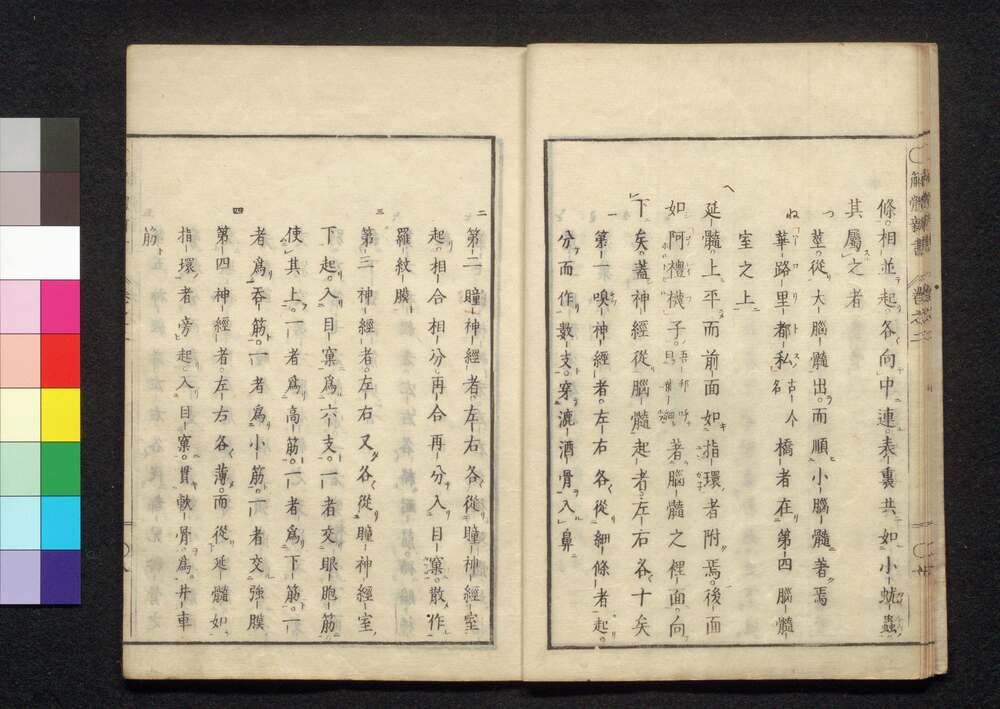 條相並起各向中連表裏共如小蚘蟲
其屬之者
つ 莖從大腦髓出而順小腦髓著焉
ね 華路里都私古人名橋者在第四腦髓
室之上
へ 延髓上平而前面如指環者附焉後面
如阿禮機子 著腦髓之俚面向
下矣蓋神經從腦髓起者左右各十矣
一 第一嗅神經者左右各從細條者起
分而作數支穿漉酒骨入鼻
二 第二瞳神經者左右各從瞳神經室
起相合相分再合再分入目窠散作
羅紋膜
三 第三神經者左右又各從瞳神經室
下起入目窠爲六支一者交眼胞筋
使其上一者爲高筋一者爲下筋一
者爲吞筋一者爲小筋一者交強膜
四 第四神經者左右各薄而從延髓如
指環者旁起入目窠貫軟骨爲井車
筋
解體新書